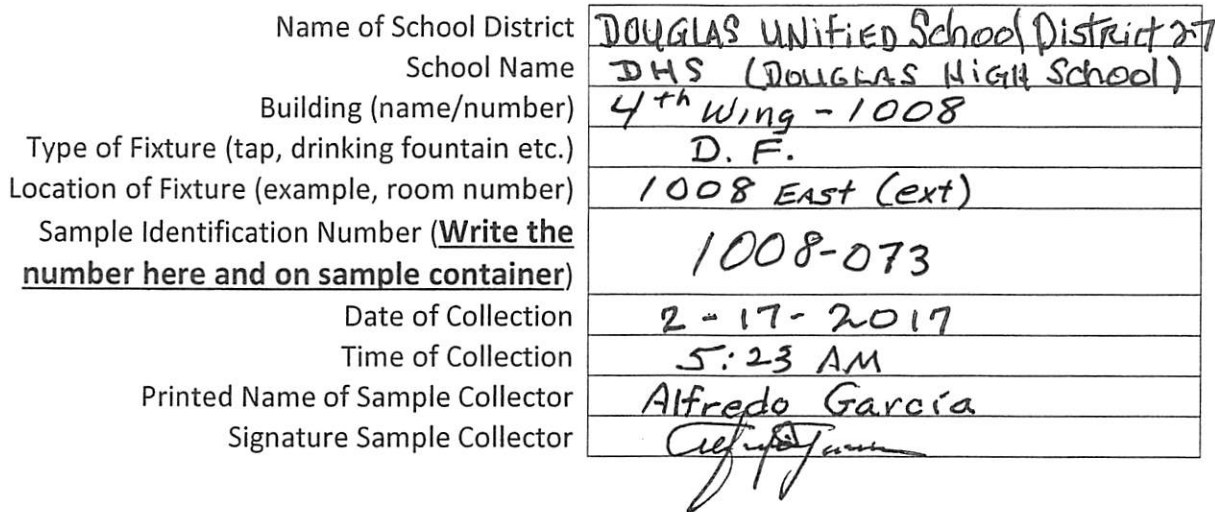 Name of School District DOUGLAS UNiFiED School District 27
School Name DHS (DOUGLAS HiGH School)
Building (name/number) 4th Wing - 1008
Type of Fixture (tap, drinking fountain etc.) D. F.
Location of Fixture (example, room number) 1008 EAST (ext)
Sample Identification Number (Write the
number here and on sample container) 1008-073
Date of Collection 2-17-2017
Time of Collection 5:23 AM
Printed Name of Sample Collector Alfredo García
Signature Sample Collector